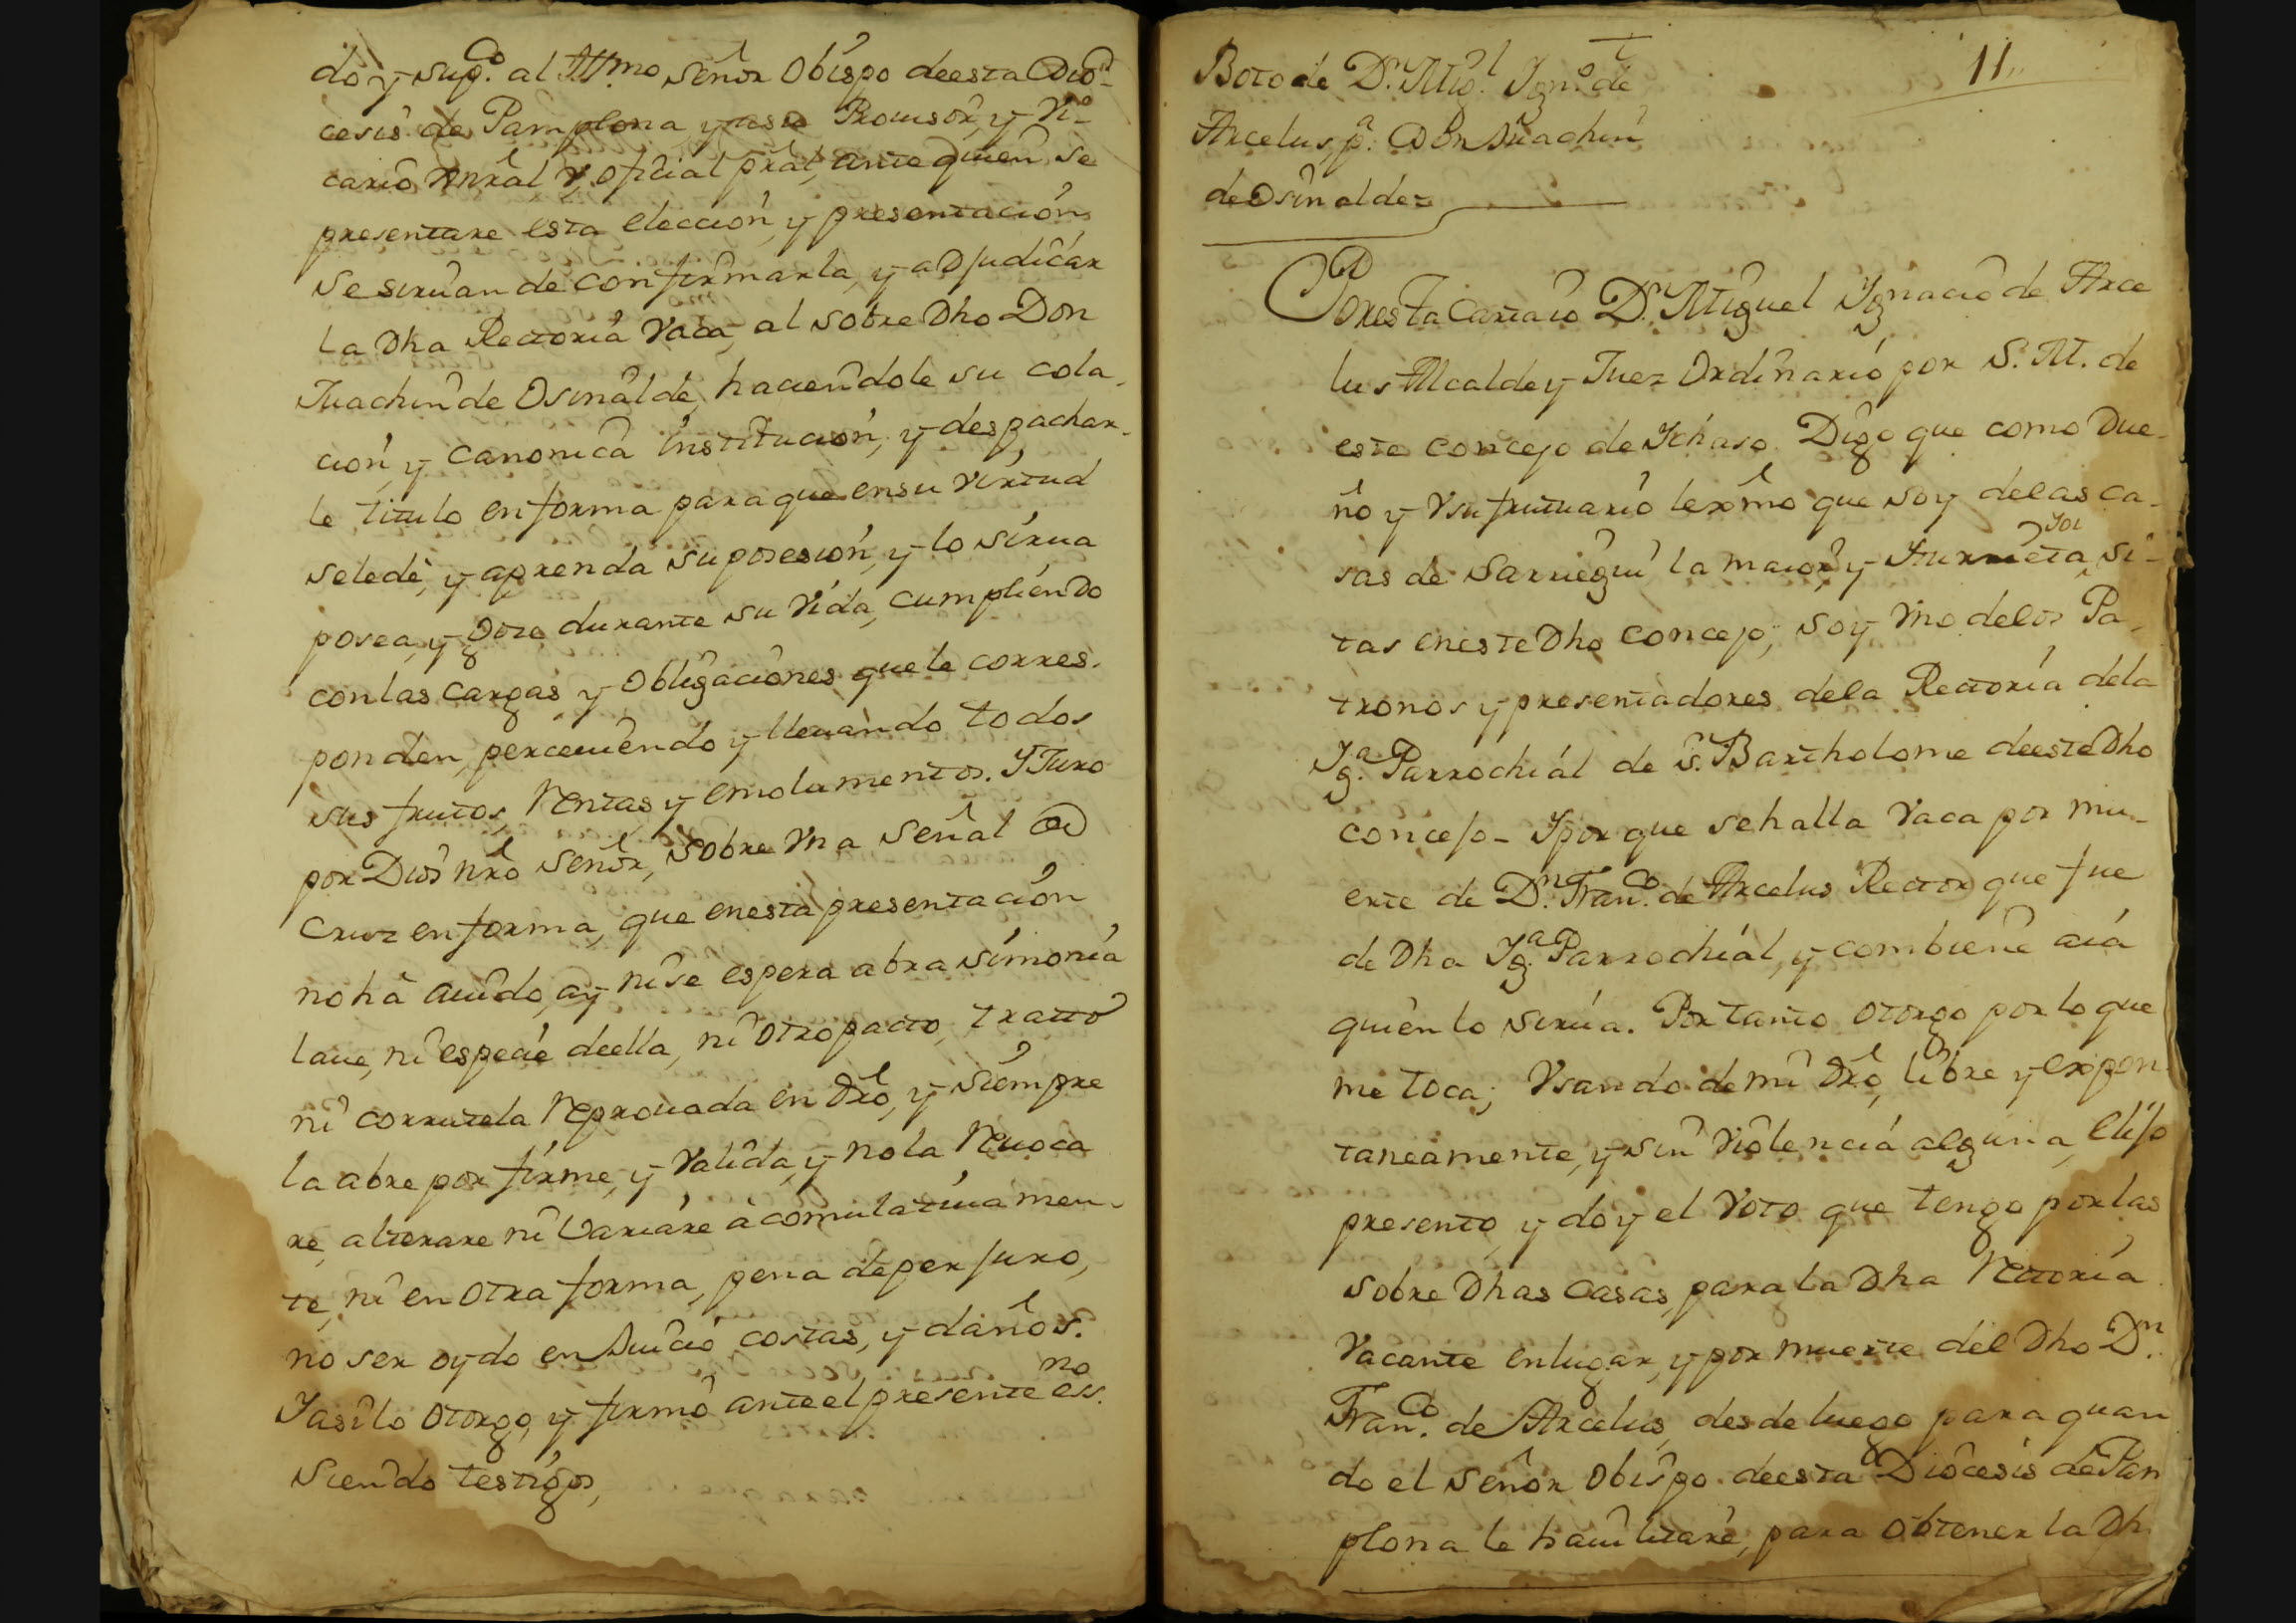 do y sup.co al Ill.mo señor Obispo de esta Dio-
cesis de Pamplona, y a su Prouisor, y Vi-
cario Gnral y oficial pral, ante quien se
presentare esta eleccion, y presentación,
se siruan de confirmarla, y adjudicar
la Dha Rectoria Vaca, al sobre Dho Don
Juachin de Osinalde, haciendole su cola-
ción, y canonica institución, y despachar-
le titulo en forma para que en su virtud
se le dè, y aprenda su posesión, y lo sirua
posea, y goze durante su vida, cumpliendo
con las cargas y obligaciones que le corres-
ponden, perceuiendo y lleuando todos
sus frutos, rentas y emolumentos. Y Juro
por Dios nrô señor, sobre vna señal de
Cruz en forma, que en esta presentación
no hà auido, ay ni se espera abra simonia
laue, ni especie de ella, ni otro pacto, tratto
ni corrutela reprouada en drô, y siempre
la abre por firme, y valida, y no la reuoca
re, alterare ni variare à comulatiuamen-
te, ni en otra forma, pena de perjuro,
no ser oydo en Juicio costas, y daños.
Y asi lo otorgo, y firmò ante el presente ess.no
siendo testigos,
11
Boto de D.n Mig.l Ign.o de
Arcelus, p.a Don Juachin
de Osinalde
Por esta carta io D.n Miguel Ignacio de Arce
lus Alcalde y Juez Ordinario por S. M. de
este concejo de Ichaso. Digo que como Due-
ño y vsufrutuario lexmo que soy de las ca-
sas de Sarriegui la maior, y Iturrieta, si-
tas en este Dho concejo, soy vno de los Pa-
tronos y presentadores de la Rectoria de la
Ig.a Parrochial de S. Bartholome de este Dho
concejo - Y por que se halla vaca por mu-
erte de D.n Fran.co de Arcelus Rector que fue
de Dha Ig.a Parrochial, y combiene aiá
quien lo sirua. Por tanto otorgo por lo que
me toca; vsando de mi drô, libre y expon
taneamente, y sin violencia alguna, elijo
presento, y doy el voto que tengo por las
sobre Dhas casas, para la Dha rectoria
vacante en lugar, y por muerte del Dho D.n
Fran.co de Arcelus, desde luego para quan
do el señor Obispo de esta Diocesis de Pan
plona le hauilitare, para obtener la Dh